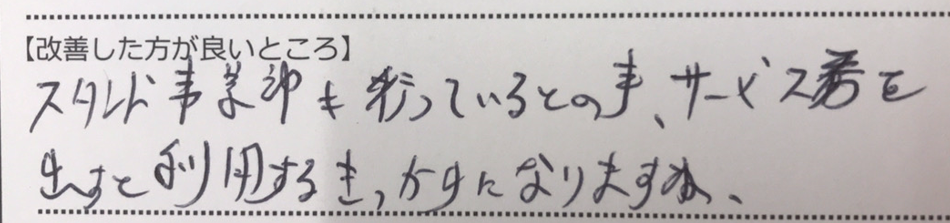 【改善した方が良いところ】
スタンド事業部も行っているとの事、サービス券を
出すと利用するきっかけになりますね、